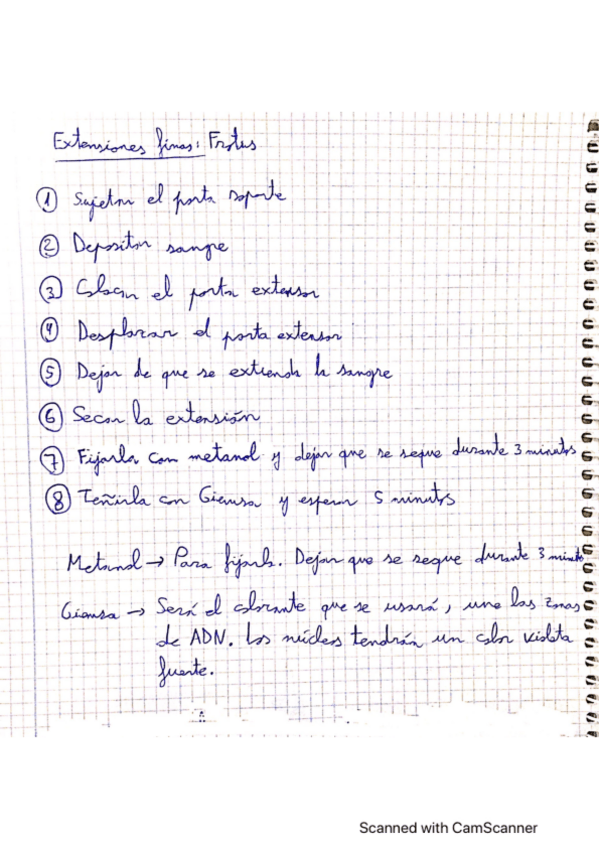 Extensiones finas: Frotis
① Sujetar el porta soporte
② Depositar sangre
③ Colocar el porta extensor
④ Desplazar el porta extensor
⑤ Dejar de que se extienda la sangre
⑥ Secar la extensión
⑦ Fijarla con metanol y dejar que se seque durante 3 minutos
⑧ Teñirla con Giemsa y esperar 5 minutos
Metanol → Para fijarla. Dejar que se seque durante 3 minutos
Giemsa → Será el colorante que se usará, une las zonas
de ADN. Los núcleos tendrán un color violeta
fuerte.
Scanned with CamScanner